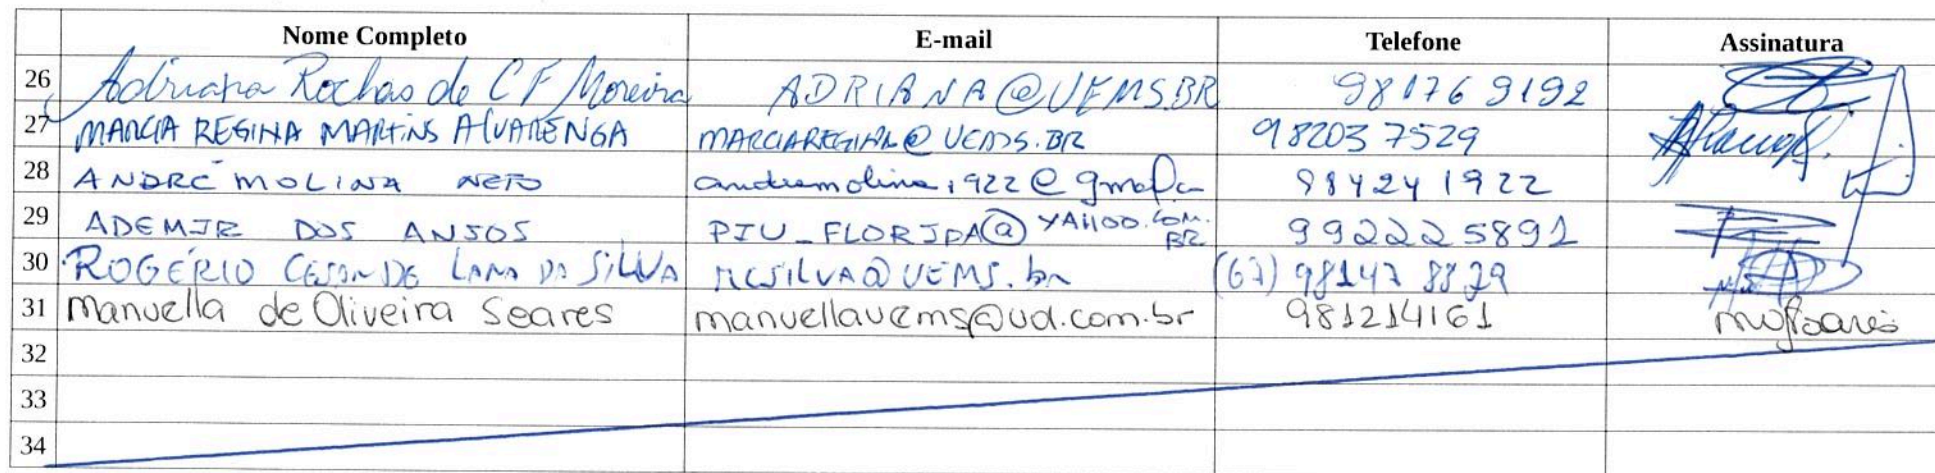 Nome Completo E-mail Telefone Assinatura
26 Adriana Rochas de C F Moreira ADRIANA@UEMS.BR 981769192
27 MARCIA REGINA MARTINS ALVARENGA MARCIAREGINA@UEMS.BR 982037529
28 ANDRÉ MOLINA NETO andremolina1922@gmail.com 984241922
29 ADEMIR DOS ANJOS PIU_FLORIPA@YAHOO.COM.BR 992225891
30 ROGÉRIO CESAR DE LANA DA SILVA RCSILVA@UEMS.br (67)
31 Manuella de Oliveira Soares manuellauems@uol.com.br 981214161
32
33
34